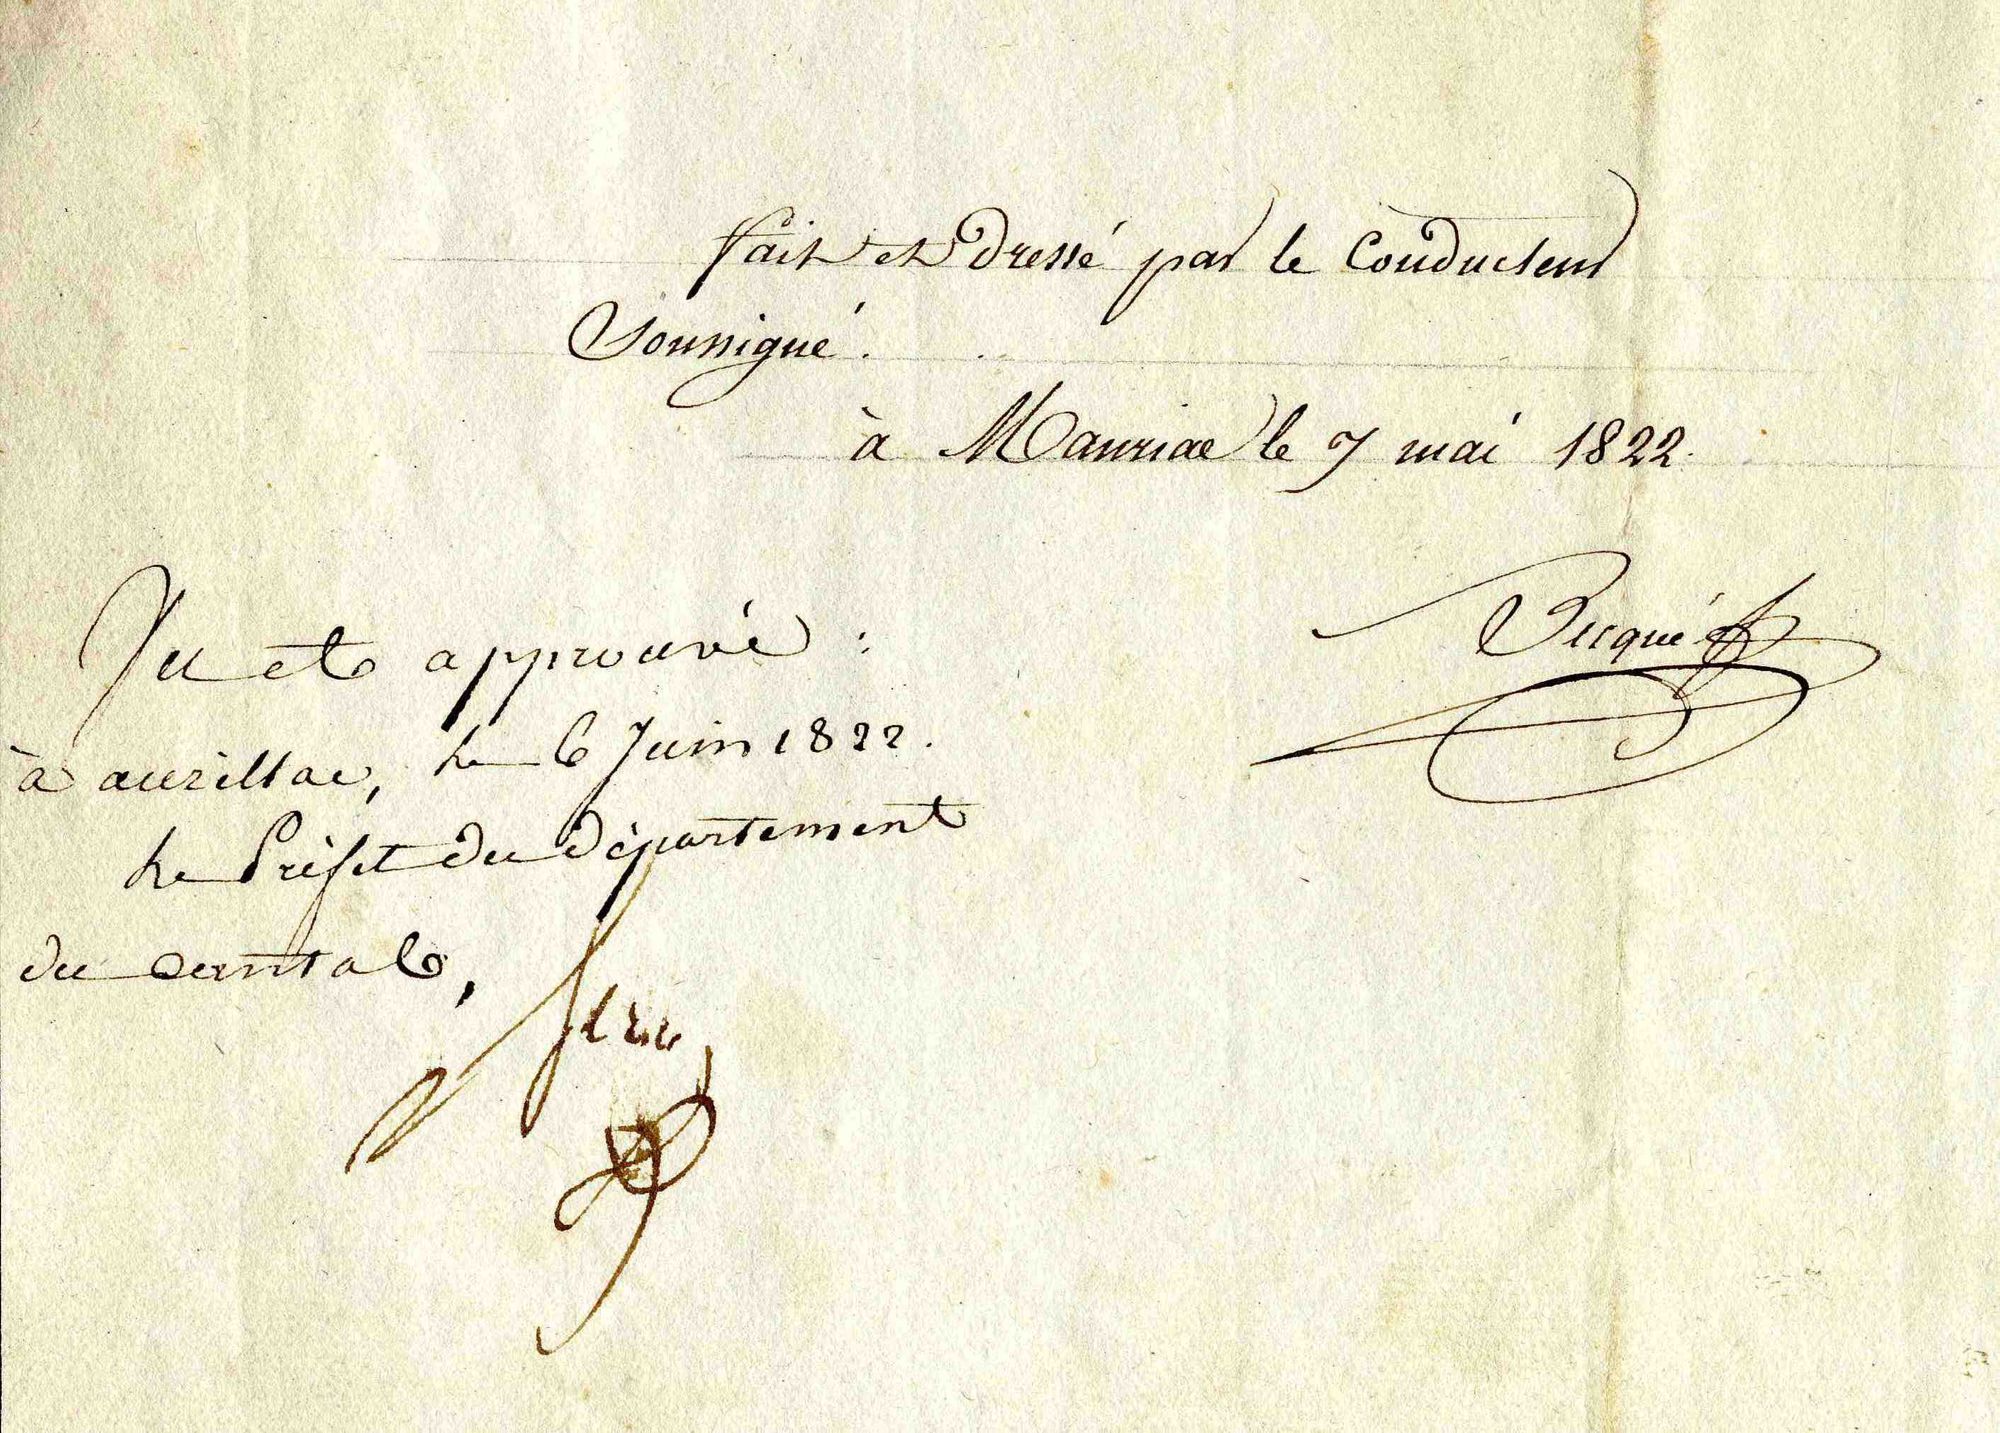 fait et Dressé par le Conducteur
Soussigné.
à Mauriac le 7 mai 1822.
Vu et approuvé :
à aurillac, le 6 Juin 1822.
Le Préfet du département
du cantal,